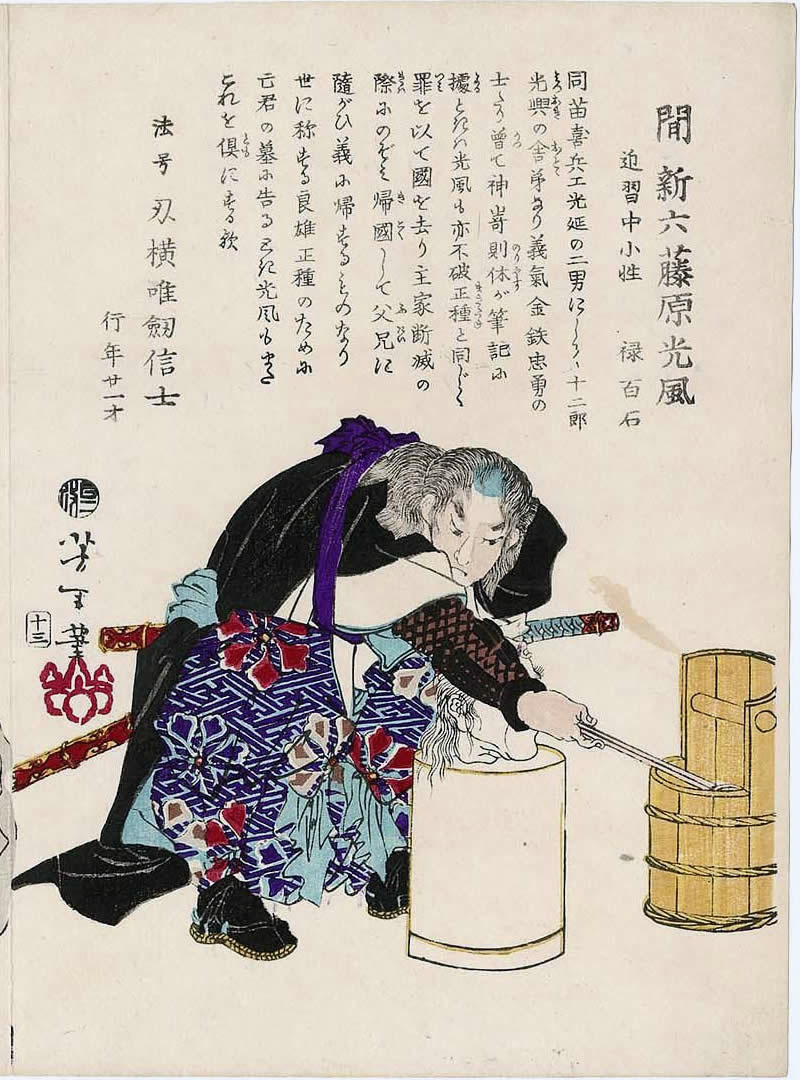 間新六藤原光風
近習中小性 禄百石
同苗喜兵エ光延の二男にして十二郎
光興の舎弟なり義氣金鉄忠勇の
士たり曽て神嵜則休が筆記に
據ときハ光風も亦不破正種と同じく
罪を以て國を去り主家断滅の
際にのぞみ帰國して父兄に
隨がひ義に帰するものなり
世に称する良雄正種のために
亡君の墓に告る
これを倶にする歟
法号 刃横唯劔信士
行年廿一才
芳年筆
十三